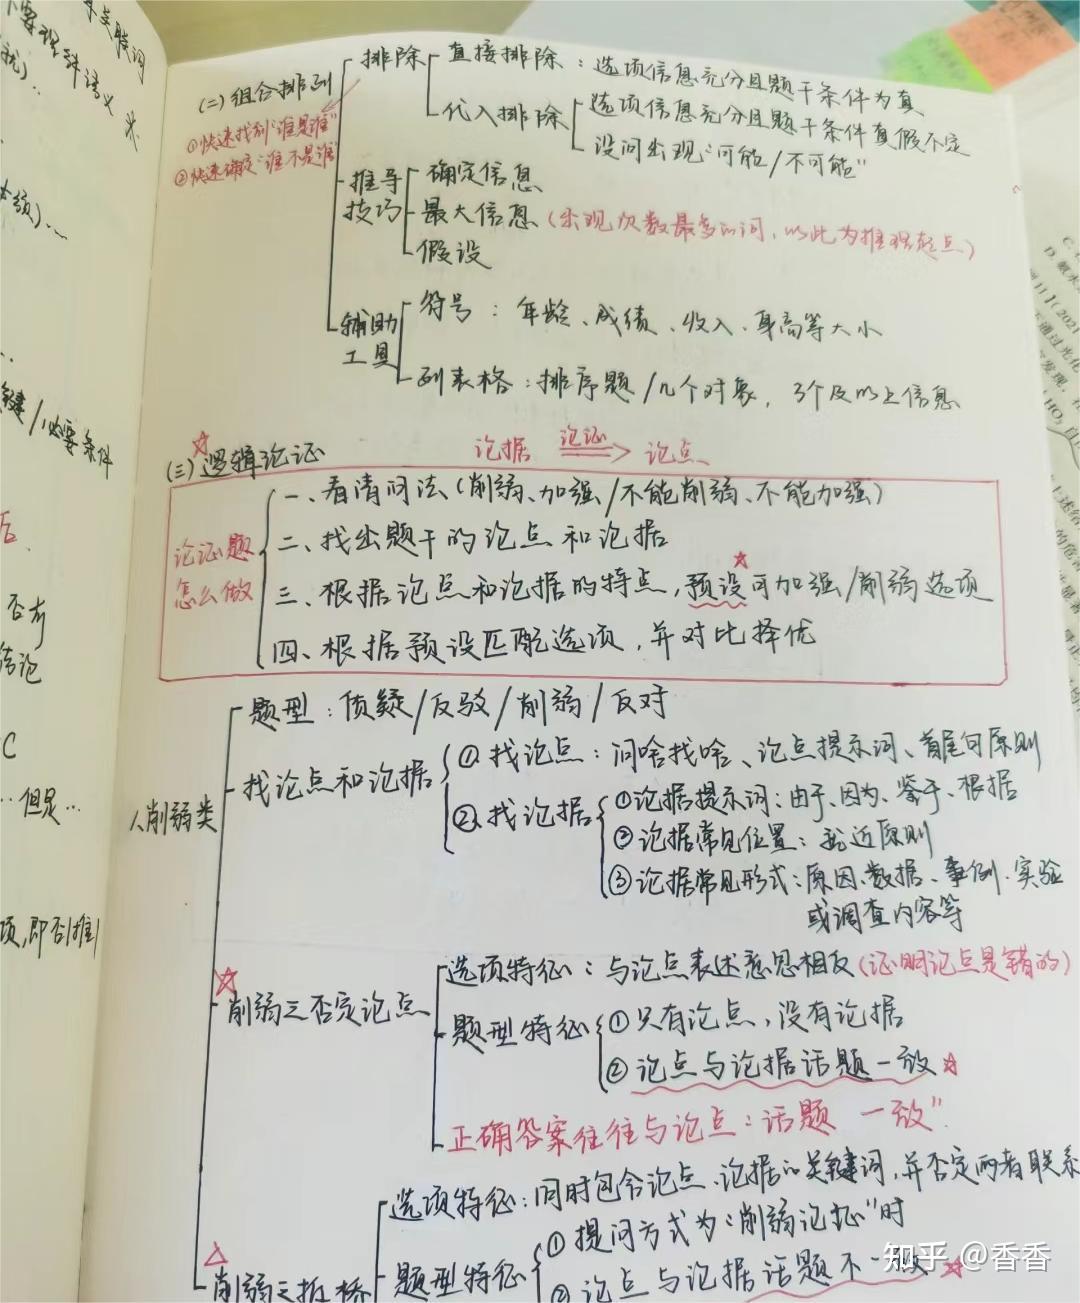 年关联词
不要理解语义
扰)…
必须)…
关键/必要条件
否有
结论
C
…但是…
项,即否1推1
(二)组合排列
①快速找到“谁是谁”
②快速确定“谁不是谁”
排除
直接排除:选项信息充分且题干条件为真
代入排除
选项信息充分且题干条件真假不定
设问出现“可能/不可能”
推导技巧
确定信息
最大信息(出现次数最多的词,以此为推理起点)
假设
辅助工具
符号:年龄、成绩、收入、身高等大小
列表格:排序题/几个对象,3个及以上信息
(三)逻辑论证
论据 论证 论点
论证题怎么做
一、看清问法(削弱、加强/不能削弱、不能加强)
二、找出题干的论点和论据
三、根据论点和论据的特点,预设可加强/削弱选项
四、根据预设匹配选项,并对比择优
1、削弱类
题型:质疑/反驳/削弱/反对
找论点和论据
①找论点:问啥找啥、论点提示词、首尾句原则
②找论据
①论据提示词:由于、因为、鉴于、根据
②论据常见位置:就近原则
③论据常见形式:原因、数据、事例、实验
或调查内容等
削弱之否定论点
选项特征:与论点表述意思相反(证明论点是错的)
题型特征
①只有论点,没有论据
②论点与论据话题一致
正确答案往往与论点“话题一致”
削弱之拆桥
选项特征:同时包含论点、论据的关键词,并否定两者联系
题型特征
①提问方式为“削弱论证”时
②论点与论据话题不一致
知乎 @香香